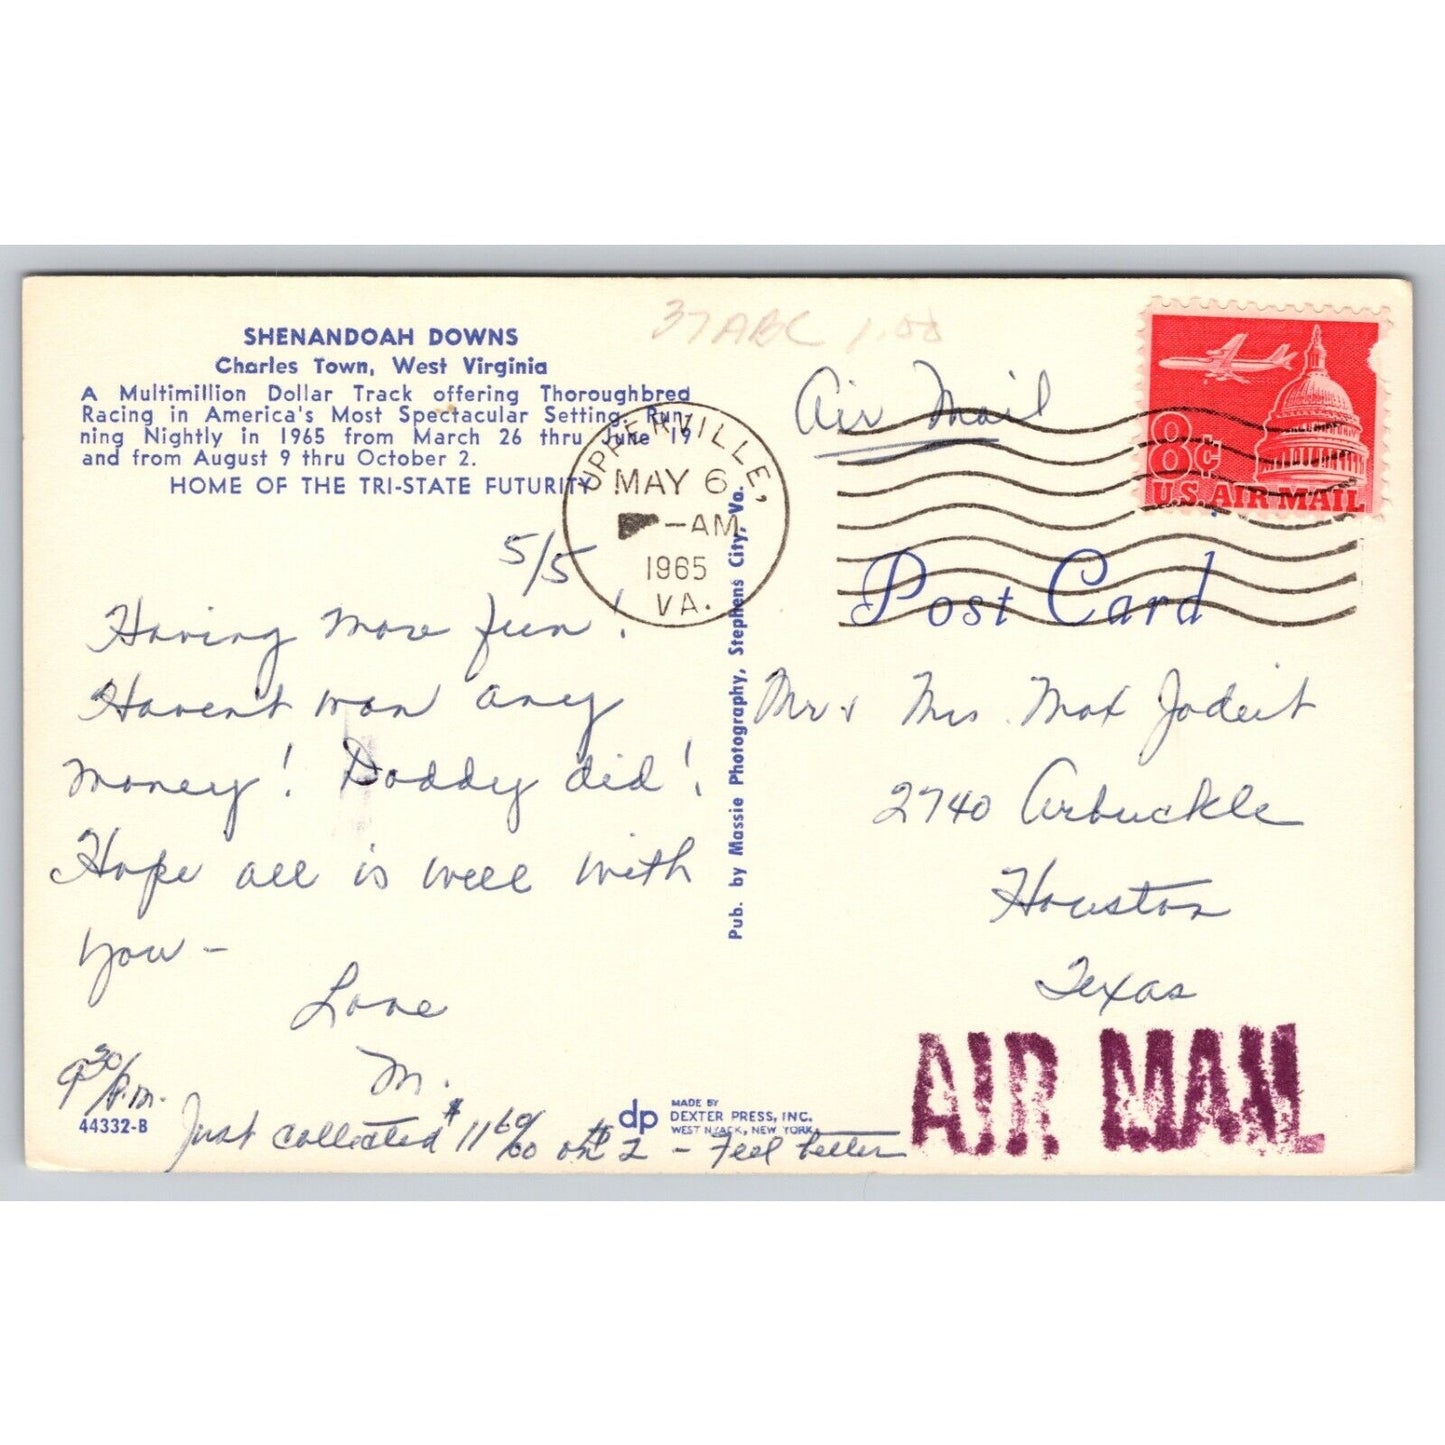 SHENANDOAH DOWNS
Charles Town, West Virginia
A Multimillion Dollar Track offering Thoroughbred
Racing in America's Most Spectacular Setting. Run-
ning Nightly in 1965 from March 26 thru June 19
and from August 9 thru October 2.
HOME OF THE TRI-STATE FUTURITY
5/5
Having more fun!
Havent won any
money! Daddy did!
Hope all is well with
you -
Love
M.
9 30/P.M.
44332-B
Just collected $11 60/00 on $2 - Feel better
dp
MADE BY
DEXTER PRESS, INC.
WEST NYACK, NEW YORK
Pub. by Massie Photography, Stephens City, Va.
37ABC 1.00
Air Mail
UPPERVILLE,
MAY 6
-AM
1965
VA.
8¢
U.S. AIR MAIL
Post Card
Mr & Mrs. Max Jodeit
2740 Arbuckle
Houston
Texas
AIR MAIL